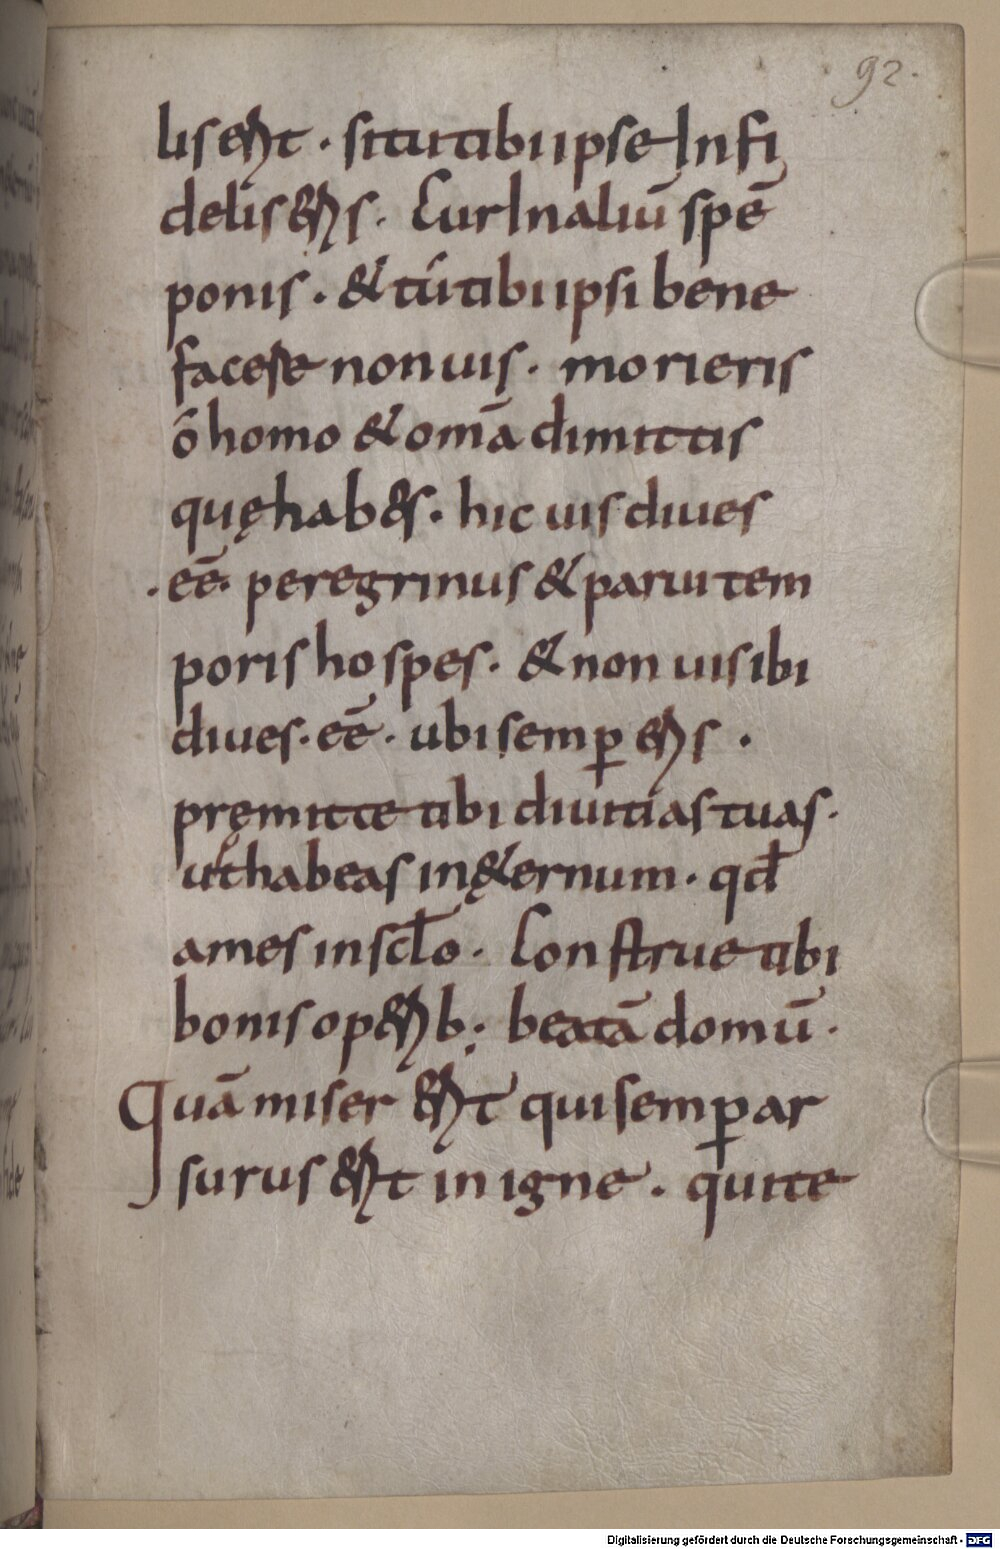 92.
lis erit . si tu tibi ipse Infi
delis eris . Cur In aliū spē
ponis . & tu tibi ipsi bene
facere non uis . morieris
ō homo & omā dimittis
quę hab&s . hic uis diues
. eē . peregrinus & parui tem
poris hospes . & non uis ibi
diues . eē . ubi semꝑ eris .
pręmitte tibi diuitias tuas .
ut habeas in ę&ernum . qđ
ames in scło . Construe tibi
bonis operib; beatā domū .
Quā miser erit qui semꝑ ar
surus erit in igne . qui te
Digitalisierung gefördert durch die Deutsche Forschungsgemeinschaft - DFG